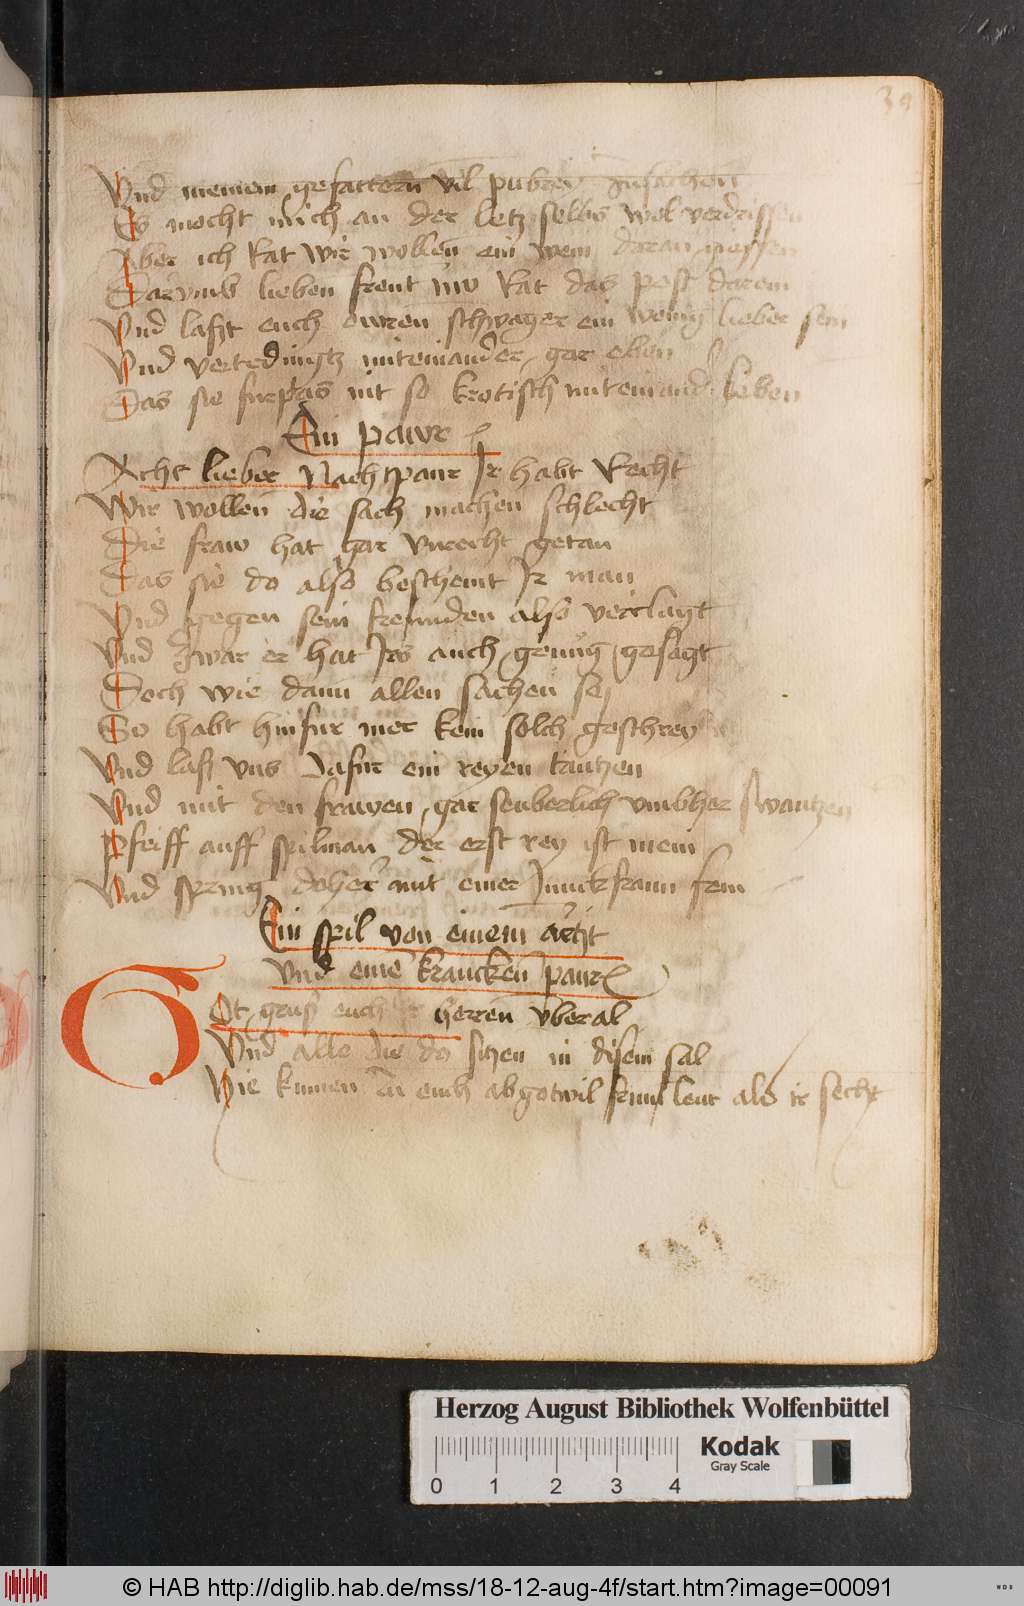 39
Vnd meinem gefattern vil pubrey zusachen
Es mocht mich an der letz selbs wol verdrissen
Aber ich Rat wir wollen ein wein daran giessen
Darvmb lieben freut nw Rat das pest darein
Vnd laszt euch ewren schwager ein wenig lieber sein
Vnd vertedingtz miteinander gar eben
Das sie furpas nit so krotisch miteinand leben
Ein pawr
Acht lieber Nachtpaur Ir habt Recht
Wir wollen die sach machen schlecht
Die fraw hat gar vnrecht getan
Das sie do also beschemt Ir man
Vnd gegen sein freunden also verclagt
Vnd zwar er hat Irs auch genug gesagt
Doch wie dann allen sachen sey
So habt hinfur mer kein solch geschrey
Vnd lasz vns dafur ein reyen tantzen
Vnd mit den frawen gar seuberlich vmbher swantzen
Pfeiff auff spilman der erst rey ist mein
Vnd spring doher mit einer Junckfraun fein
Ein spil von einem artzt
Vnd eine krancken paur
Got grusz euch ir herren vberal
Vnd alle die do sitzen in disem sal
Hie kumen zu euch abgotwil frum leut als ir secht
Herzog August Bibliothek Wolfenbüttel
Kodak
Gray Scale
0 1 2 3 4
© HAB http://diglib.hab.de/mss/18-12-aug-4f/start.htm?image=00091